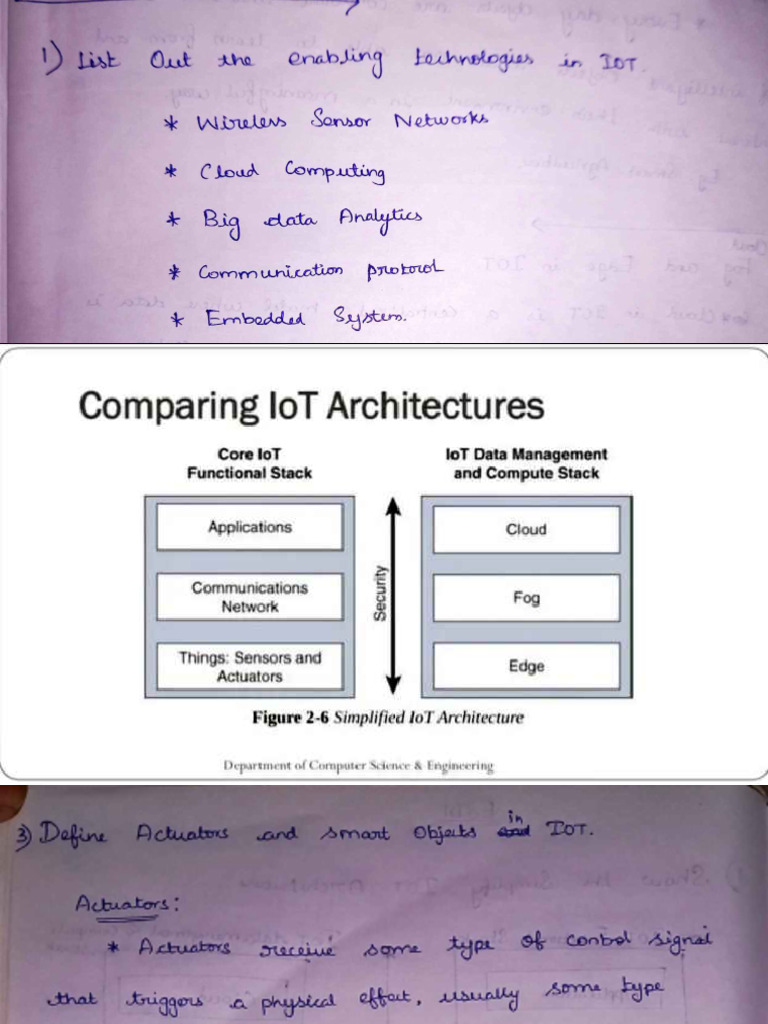 1) List Out the enabling technologies in IOT.
* Wireless Sensor Networks
* Cloud Computing
* Big data Analytics
* Communication protocol
* Embedded System.
Comparing IoT Architectures
Core IoT
Functional Stack
IoT Data Management
and Compute Stack
Applications
Communications
Network
Things: Sensors and
Actuators
Security
Cloud
Fog
Edge
Figure 2-6 Simplified IoT Architecture
Department of Computer Science & Engineering
3) Define Actuators and smart Objects in IOT.
Actuators:
* Actuators receive some type of control signal
that triggers a physical effect, usually some type